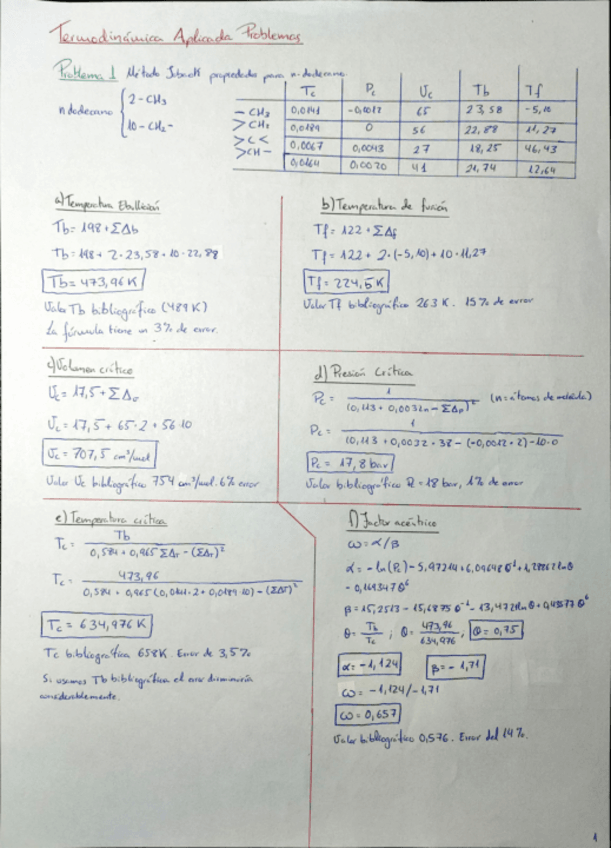 Termodinámica Aplicada Problemas
Problema 1 Método Joback propiedades para n-dodecano
n dodecano { 2 - CH3
10 - CH2 -
Tc Pc Vc Tb Tf
- CH3 0,0141 -0,0012 65 23,58 -5,10
> CH2 0,0189 0 56 22,88 11,27
> C < 0,0067 0,0043 27 18,25 46,43
> CH - 0,0164 0,0020 41 21,74 12,64
a) Temperatura Ebullición
Tb = 198 + ΣΔb
Tb = 198 + 2·23,58 + 10·22,88
Tb = 473,96 K
Valor Tb bibliográfico (489 K)
La fórmula tiene un 3% de error.
b) Temperatura de fusión
Tf = 122 + ΣΔf
Tf = 122 + 2·(-5,10) + 10·11,27
Tf = 224,5 K
Valor Tf bibliográfico 263 K. 15% de error
c) Volumen crítico
Vc = 17,5 + ΣΔv
Vc = 17,5 + 65·2 + 56·10
Vc = 707,5 cm³/mol
Valor Vc bibliográfico 754 cm³/mol. 6% error
d) Presión Crítica
Pc = 1 / (0,113 + 0,0032n - ΣΔp)² (n = átomos de molécula)
Pc = 1 / (0,113 + 0,0032·38 - (-0,0012·2) - 10·0
Pc = 17,8 bar
Valor bibliográfico Pc = 18 bar, 1% de error
e) Temperatura crítica
Tc = Tb / 0,584 + 0,965 ΣΔT - (ΣΔT)²
Tc = 473,96 / 0,584 + 0,965 (0,0141·2 + 0,0189·10) - (ΣΔT)²
Tc = 634,976 K
Tc bibliográfica 658 K. Error de 3,5%
Si usamos Tb bibliográfica el error disminuiría
considerablemente.
f) Factor acéntrico
ω = α/β
α = -ln(Pc) - 5,97214 + 6,09648 θ⁻¹ + 1,28862 ln θ
- 0,169347 θ⁶
β = 15,2513 - 15,6875 θ⁻¹ - 13,4721 ln θ + 0,43577 θ⁶
θ = Tb / Tc ; θ = 473,96 / 634,976, θ = 0,75
α = -1,124 β = -1,71
ω = -1,124/-1,71
ω = 0,657
Valor bibliográfico 0,576. Error del 14%.
1